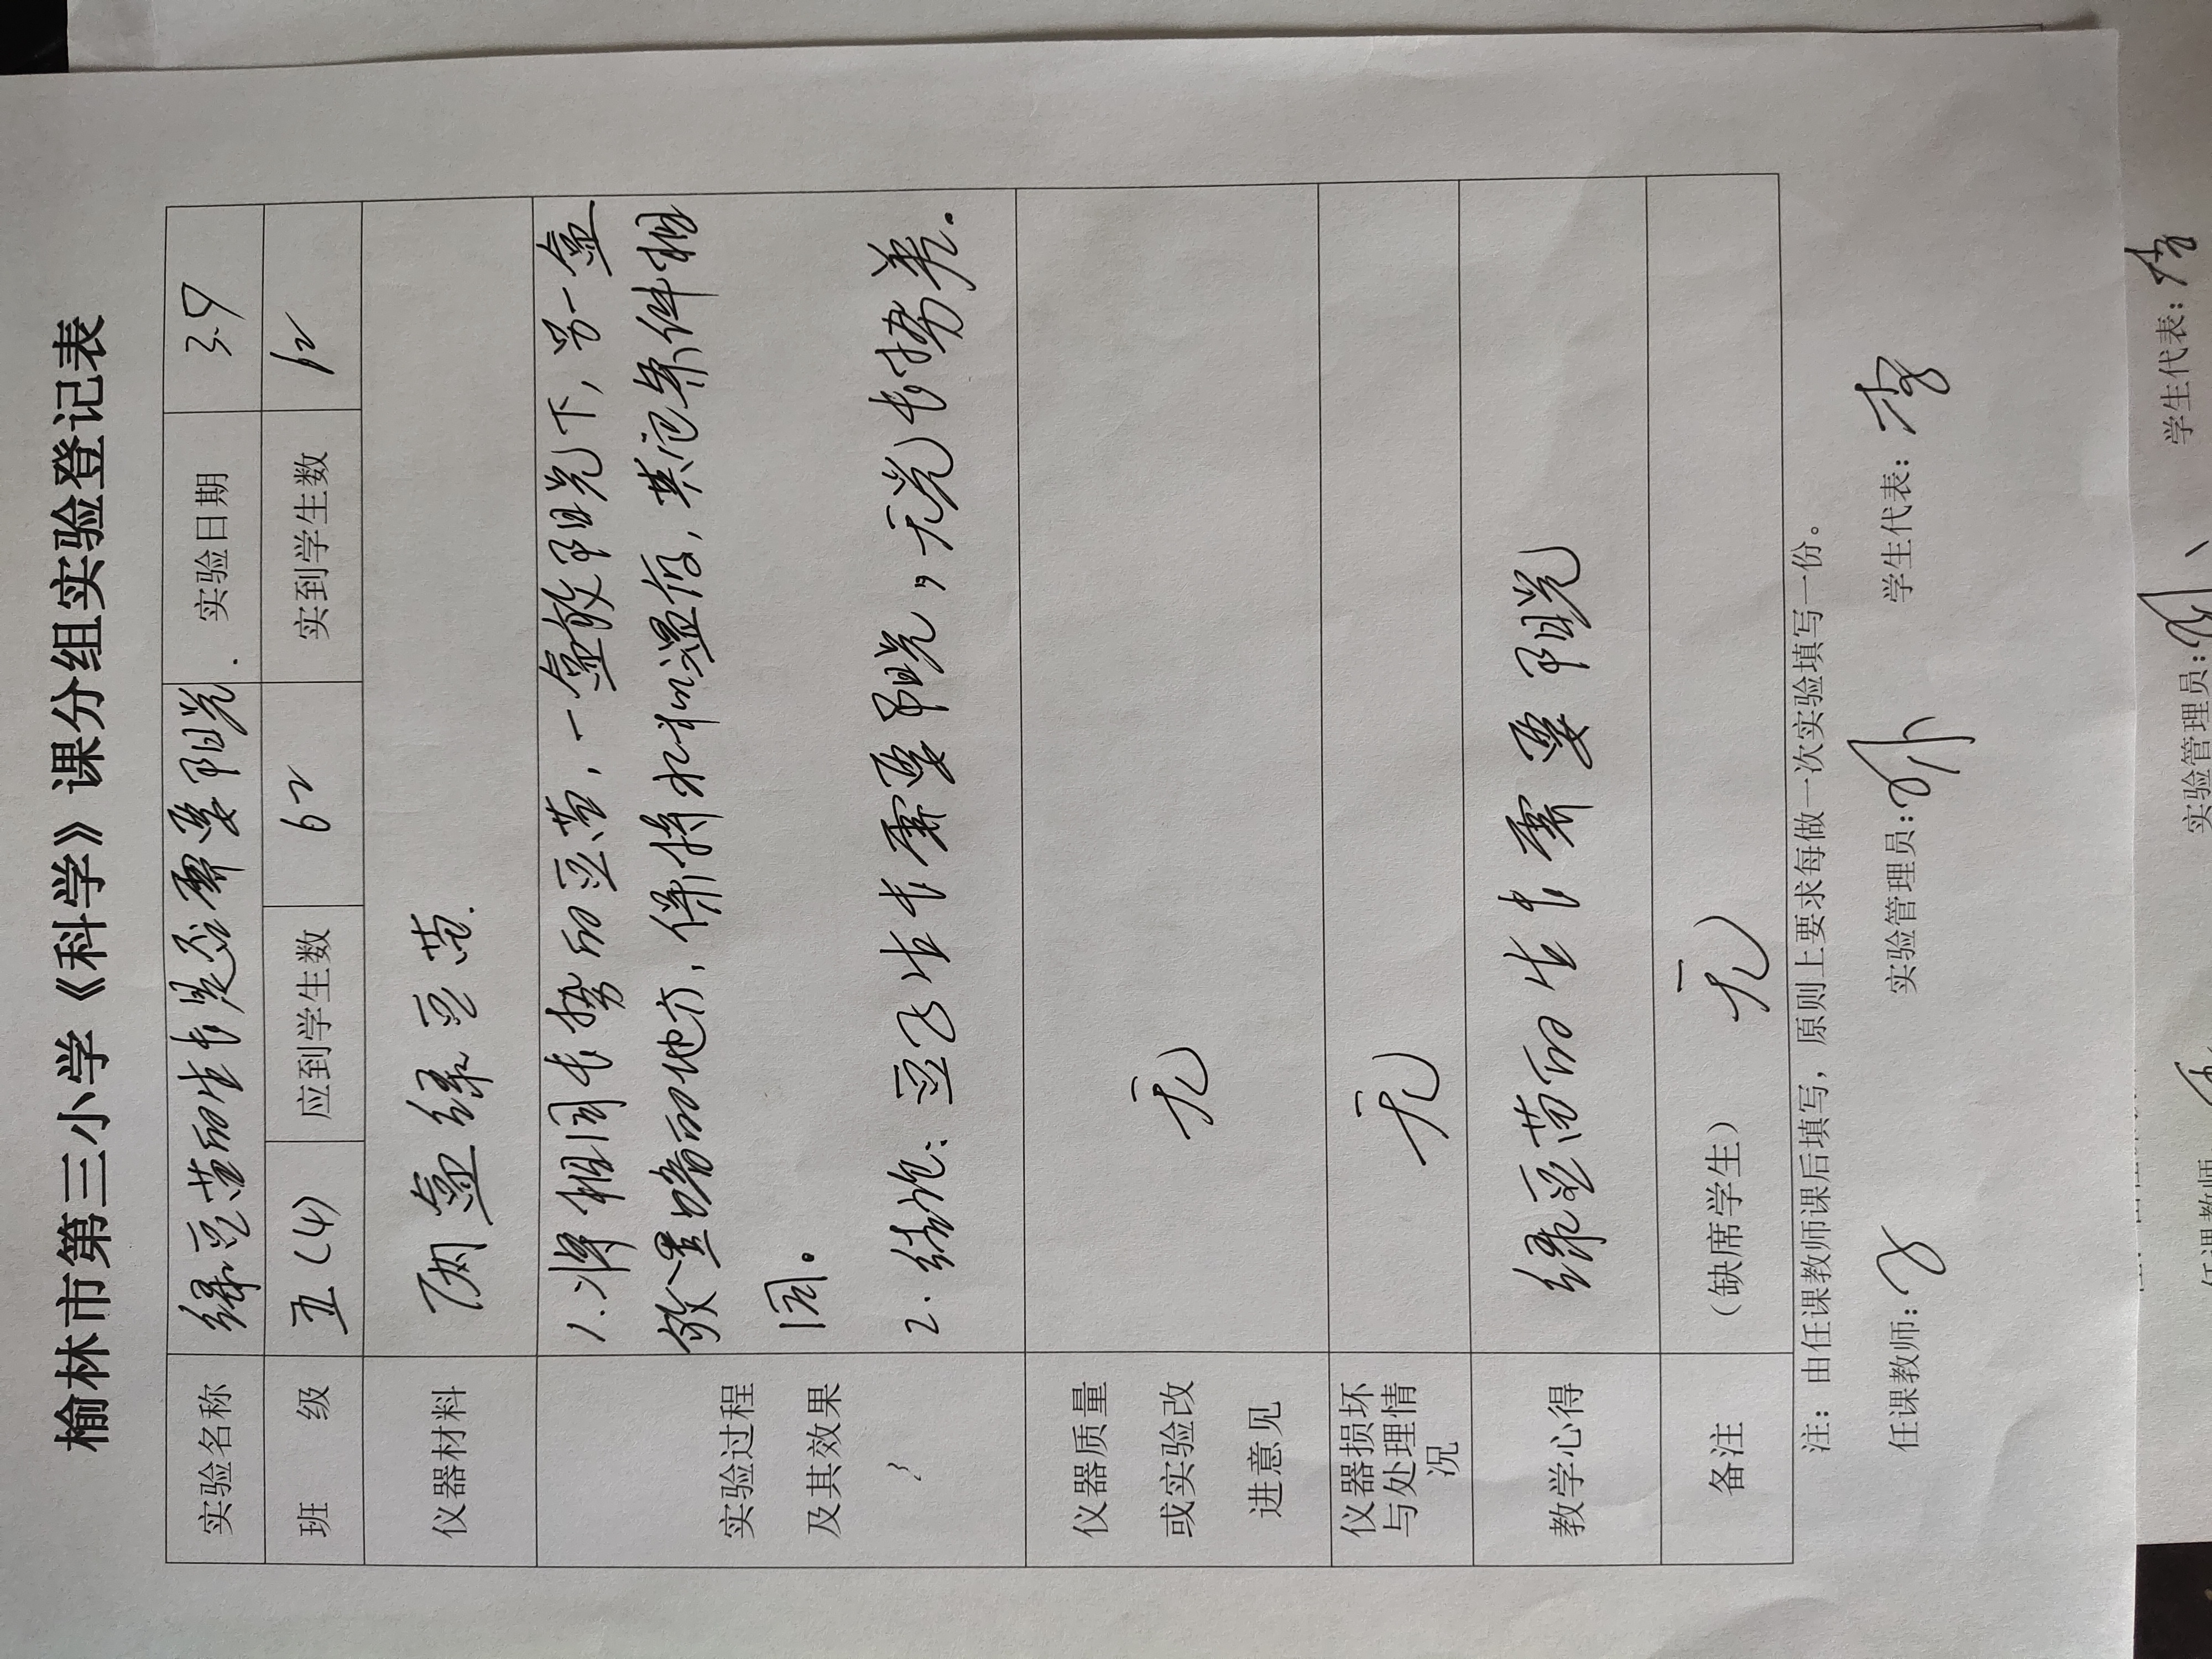 榆林市第三小学《科学》课分组实验登记表
实验名称 绿豆苗的生长是否需要阳光 实验日期 3.9
班 级 五(4) 应到学生数 62 实到学生数 62
仪器材料 两盆绿豆苗.
实验过程
及其效果
1.将相同长势的豆苗,一盆放阳光下,另一盆
放置暗的地方,保持水和湿度,其它条件相
同。
2.结论:豆子生长需要阳光,无光长势差.
仪器质量
或实验改
进意见
无
仪器损坏
与处理情
况
无
教学心得 绿豆苗的生长需要阳光
备注 (缺席学生) 无
注:由任课教师课后填写,原则上要求每做一次实验填写一份。
任课教师: 实验管理员: 学生代表:李
实验管理员: 学生代表: